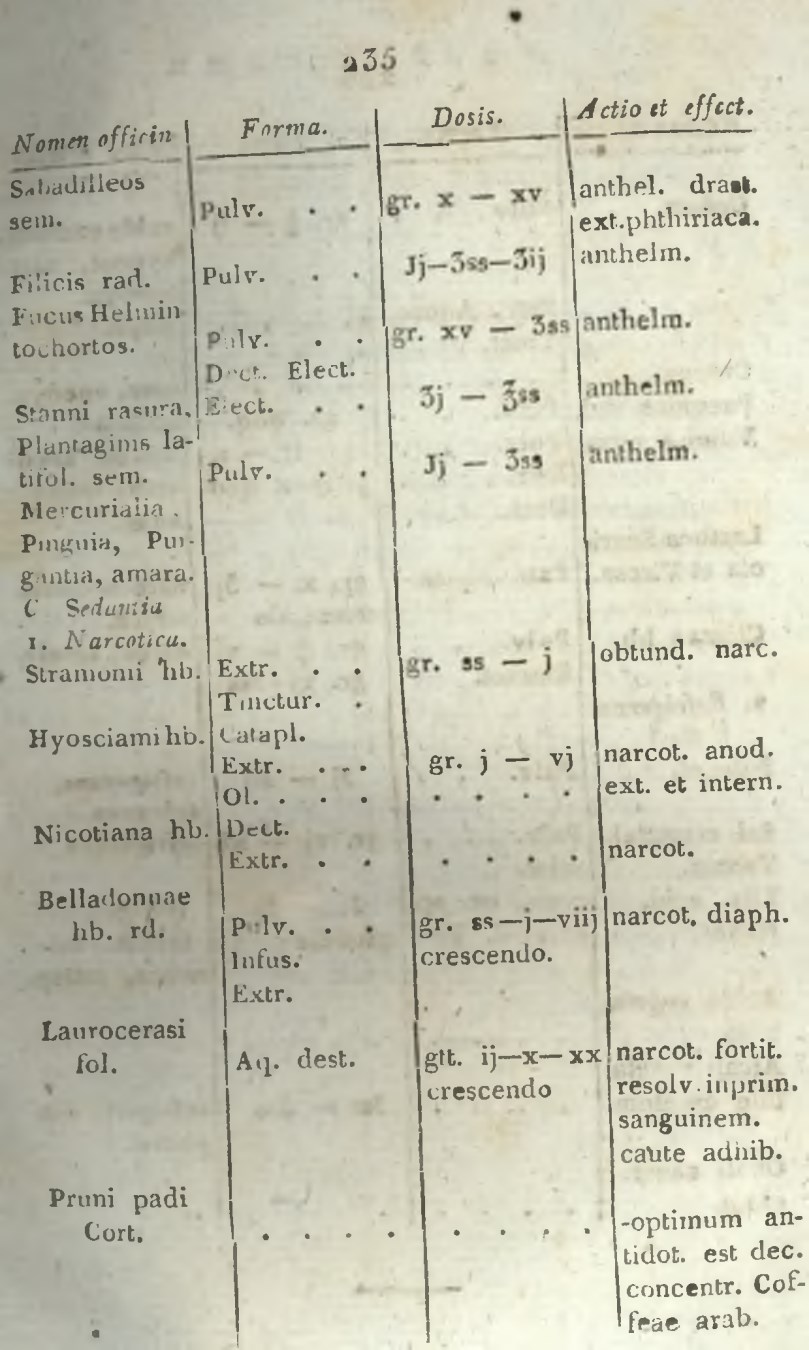 235
Nomen officin | Forma. | Dosis. | Actio et effect.
Sabadilleos | | | anthel. drast.
sem. | Pulv. . . | gr. x — xv | ext. phthiriaca.
Filicis rad. | Pulv. . . | ℈j—ʒss—ʒij | anthelm.
Fucus Helmin
tochortos. | Pulv. . . | gr. xv — ʒss | anthelm.
Dect. Elect.
Stanni rasura. | Elect. . . | ʒj — ℥ss | anthelm.
Plantaginis la-
tifol. sem. | Pulv. . . | ℈j — ʒss | anthelm.
Mercurialia .
Pinguia, Pur-
gantia, amara.
C Sedantia
1. Narcotica.
Stramonii hb. | Extr. . . | gr. ss — j | obtund. narc.
Tinctur. .
Hyosciami hb. | Catapl.
Extr. . . . | gr. j — vj | narcot. anod.
Ol. . . . | . . . . | ext. et intern.
Nicotiana hb. | Dect.
Extr. . . | . . . . | narcot.
Belladonnae
hb. rd. | Pulv. . . | gr. ss—j—viij | narcot. diaph.
Infus. | crescendo.
Extr.
Laurocerasi
fol. | Aq. dest. | gtt. ij—x—xx | narcot. fortit.
crescendo | resolv. inprim.
sanguinem.
caute adhib.
Pruni padi
Cort. | . . . . | . . . . | -optimum an-
tidot. est dec.
concentr. Cof-
feae arab.